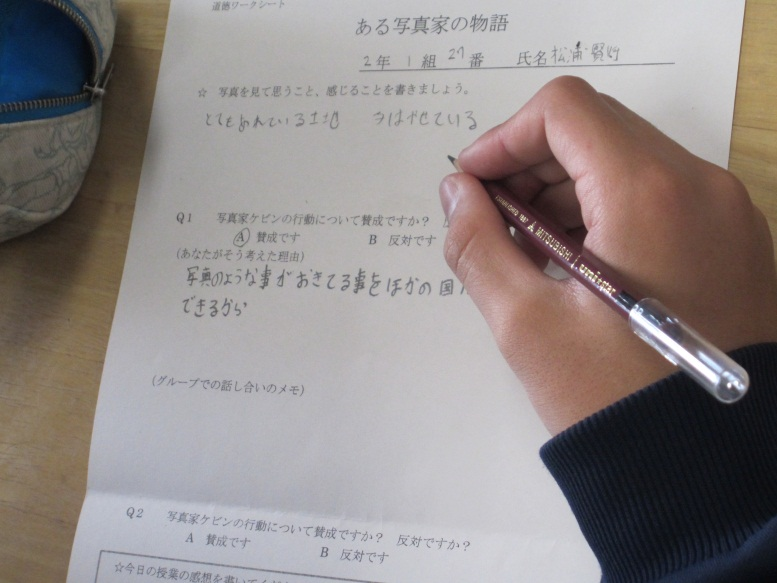 道徳ワークシート
ある写真家の物語
2年 1組 27番 氏名 松浦
☆ 写真を見て思うこと、感じることを書きましょう。
とても あれている土地 やせている
Q1 写真家ケビンの行動について賛成ですか?
A 賛成です B 反対です
(あなたがそう考えた理由)
写真のような事がおきてる事をほかの国
できるから
(グループでの話し合いのメモ)
Q2 写真家ケビンの行動について賛成ですか? 反対ですか?
A 賛成です B 反対です
☆今日の授業の感想を書いてくだ
MITSUBISHI